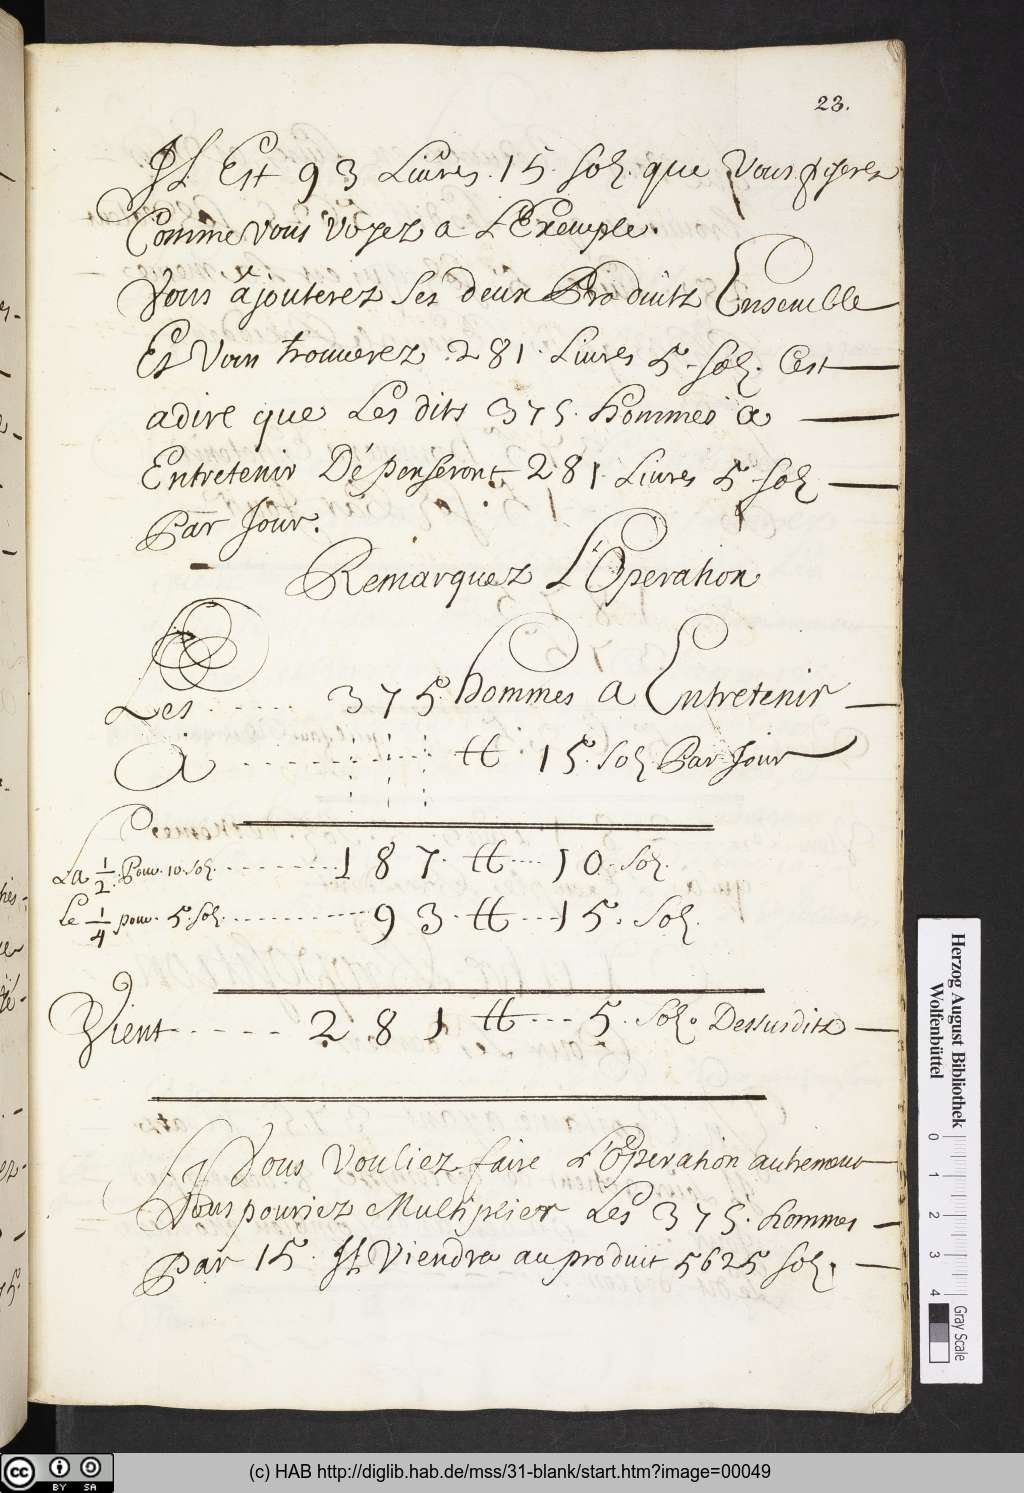 23.
Il Est 93 Liures. 15. Solz. que Vous poserez
Comme Vous Voyez a L'Exemple.
Vous ajouterez Ses deux Produits Ensemble
Et Vous trouuerez .281. Liures 5. Solz. Cest
adire que Les dits 375. hommes a
Entretenir Dépenseront 281 Liures 5 Solz
Par Jour.
Remarquez L'Operation
Les ..... 375. hommes a Entretenir
A .......... tt 15. Solz Par Jour
La 1/2 Pour. 10. Solz. ........ 187. tt .... 10. Solz.
Le 1/4 pour. 5. Solz. ........ 93. tt ... 15. Solz.
Vient ..... 281 tt ... 5. Solz. Desusdits
Si Vous Vouliez faire L'Operation autrement
Vous pouriez Multiplier Les 375. hommes
Par 15. Il Viendra au produit 5625 Solz.
Herzog August Bibliothek
Wolfenbüttel
0 1 2 3 4
Gray Scale
(c) HAB http://diglib.hab.de/mss/31-blank/start.htm?image=00049
cc BY SA